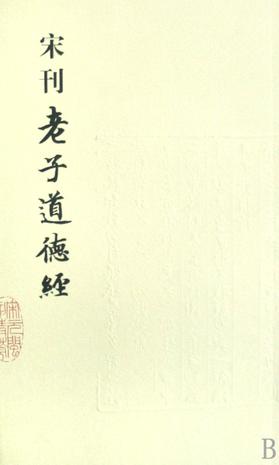 宋刊老子道德經
B